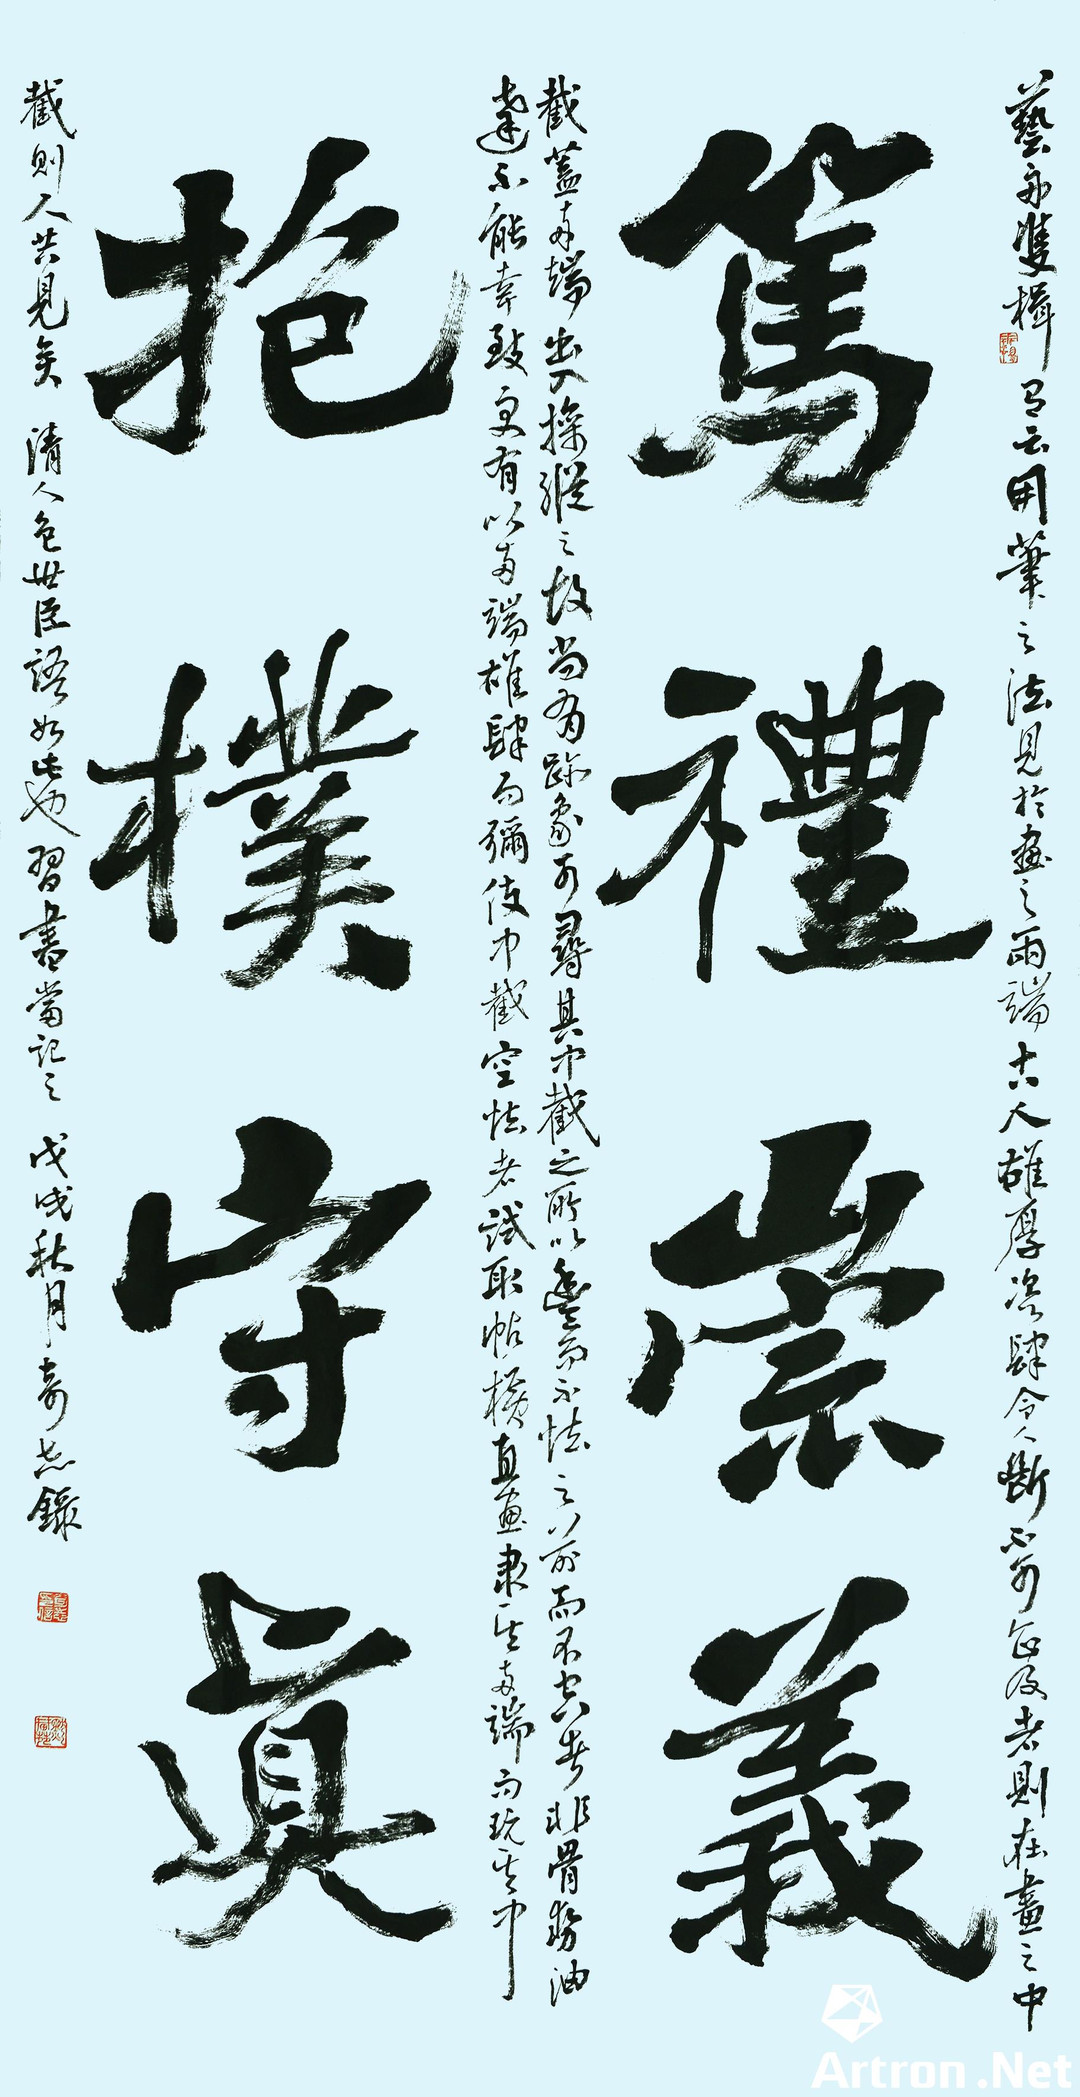 藝舟雙楫有云用筆之法見於畫之兩端古人雄厚恣肆令人斷不可企及者則在畫之中
篤禮崇義
截蓋兩端出入操縱之故尚有跡象可尋其中截之所以豐而不怯而不空者非骨勢洞
達不能幸致更有以兩端雄肆而彌使中截空怯者試取帖橫直畫其兩端而玩其中
抱樸守真
截則人共見矣 清人包世臣語如此也習書當記之 戊戌秋月奇志錄
Artron.Net